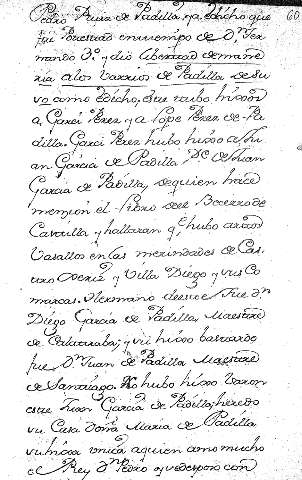 Pedro Ruiz de Padilla, ya edicho que
fue Poblado en tiempo de Dn. Fer-
nando 3º. y dio libertad de mane
ria a los vasallos de Padilla de su
vº como edicho, este tubo hijos
a, Garci Perez y a Lope Perez de Pa-
dilla. Garci Perez hubo hijo a Ju-
an Garcia de Padilla, de Juan
Garcia de Padilla, de quien hace
mencion el libro del Becerro de
Castilla y hallaran q.e hubo
Vasallos en las merindades de Cas-
tro Xeriz y Villa Diego y sus Co
marcas. Hermano de este fue Dn.
Diego Garcia de Padilla, Maestre
de Calatraba; y su hijo bastardo
fue Dn. Juan de Padilla Maestre
de Santiago. No hubo hijo Varon
este Juan Garcia de Padilla, heredo
su Casa Doña Maria de Padilla
su hija unica a quien amo mucho
el Rey Dn. Pedro y se desposo con
60